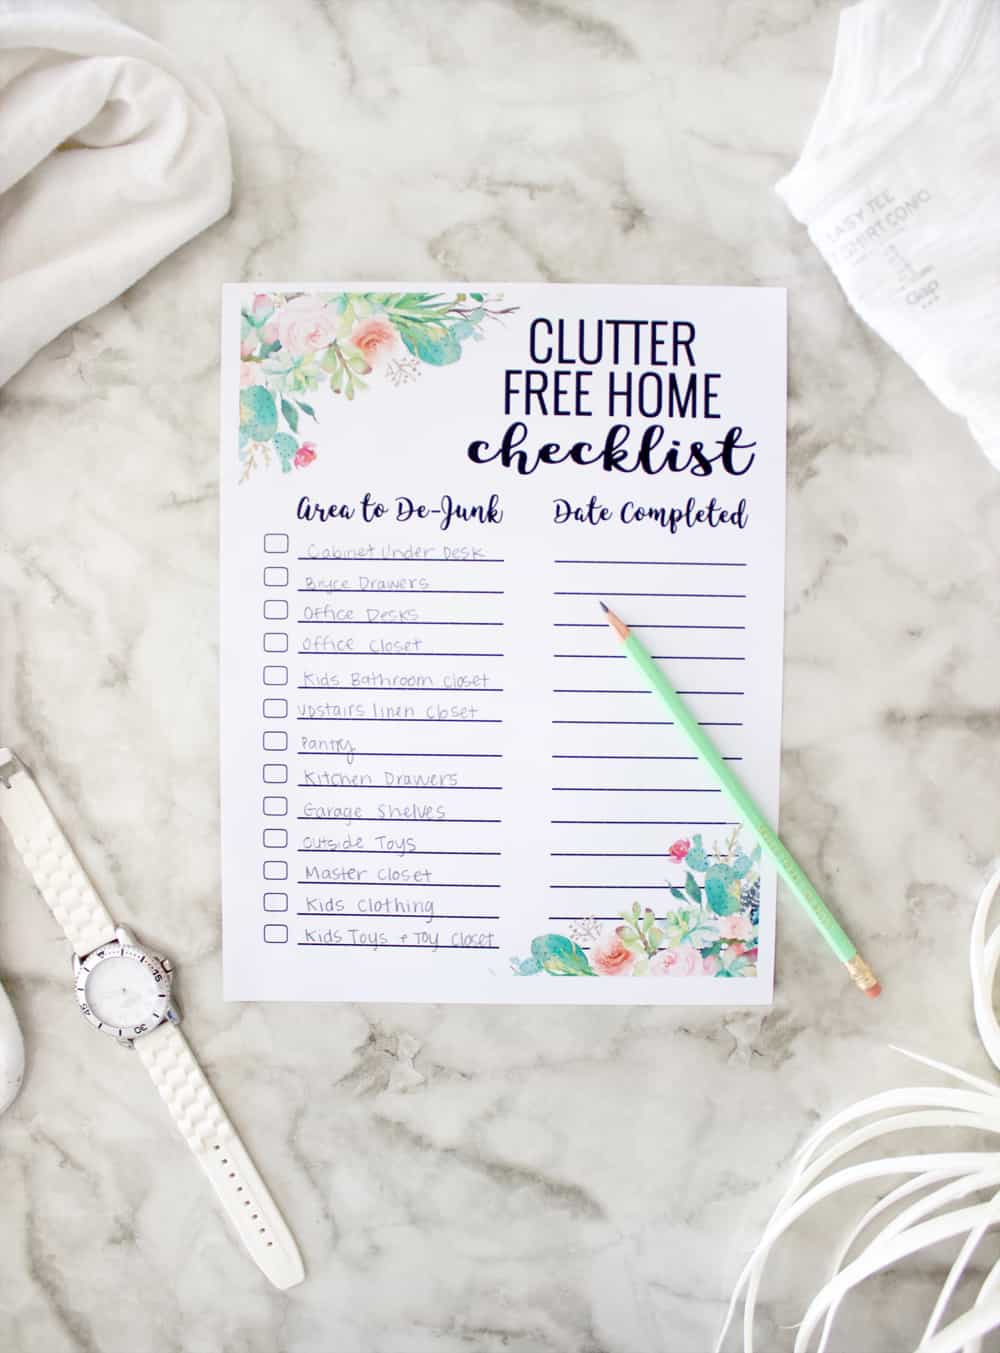 CLUTTER
FREE HOME
checklist
Area to De-Junk Date Completed
Cabinet Under Desk
Bryce Drawers
Office Desks
Office Closet
Kids Bathroom Closet
Upstairs linen closet
Pantry
Kitchen Drawers
Garage Shelves
Outside Toys
Master Closet
Kids Clothing
Kids Toys + Toy Closet
EASY TEE
GAP
15
30
45